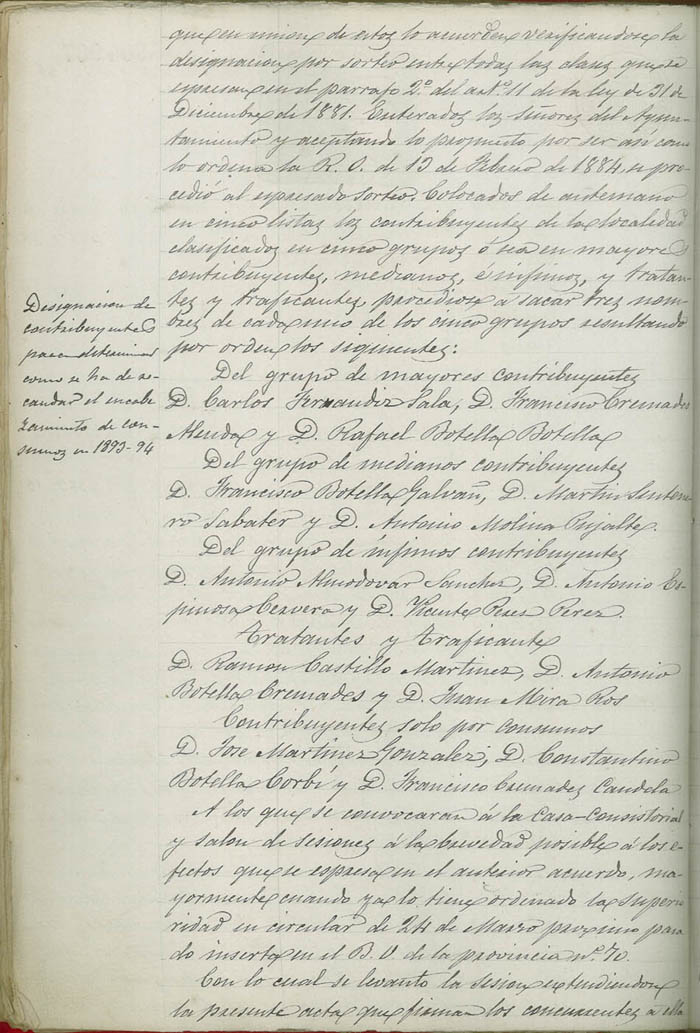 que en union de estos lo acuerden verificandose la
designacion por sorteo entre todas las clases que se
espresan en el parrafo 2º del artº 11 de la ley de 31 de
Diciembre de 1881. Enterados los señores del Ayun-
tamiento y aceptando lo propuesto por ser así como
lo ordena la R. O. de 13 de Febrero de 1884, se pro-
cedió al espresado sorteo. Colocados de antemano
en cinco listas los contribuyentes de la localidad
clasificados en cinco grupos ó sea en mayores
contribuyentes, medianos, é infimos, y tratan-
tes y traficantes, procediose á sacar tres nom-
bres de cada uno de los cinco grupos resultando
por orden los siguientes:
Designacion de
contribuyentes
para determinar
como se ha de re-
caudar el encabe
zamiento de con-
sumos en 1893-94
Del grupo de mayores contribuyentes
D. Carlos Fernandiz Sala, D. Francisco Cremades
Alenda y D. Rafael Botella Botella
Del grupo de medianos contribuyentes
D. Francisco Botella Galvañ, D. Martin Sente-
ro Sabater y D. Antonio Molina Pujalte.
Del grupo de ínfimos contribuyentes
D. Antonio Almodovar Sanchez, D. Antonio Es-
pinosa Cervera y D. Vicente Perez Perez.
Tratantes y traficante
D. Ramon Castillo Martinez, D. Antonio
Botella Cremades y D. Juan Mira Ros
Contribuyentes solo por consumos
D. Jose Martinez Gonzalez, D. Constantino
Botella Corbí y D. Francisco Cremades Candela
A los que se convocaran á la Casa-Consistorial
y salon de sesiones á la brevedad posible á los e-
fectos que se espresa en el anterior acuerdo, ma-
yormente cuando ya lo tiene ordenado la superio
ridad en circular de 24 de Marzo proximo pasa
do inserta en el B. O. de la provincia nº. 70.
Con lo cual se levanto la sesion extendiendose
la presente acta que firman los concurrentes a ella